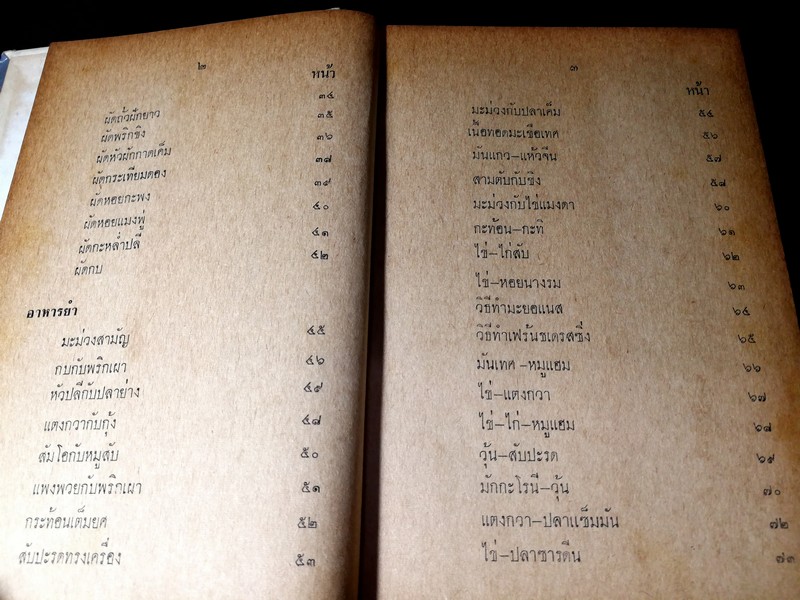 ๒
หน้า
ผัดถั้วฝักยาว ๓๔
ผัดพริกขิง ๓๕
ผัดหัวผักกาดเค็ม ๓๖
ผัดกระเทียมดอง ๓๘
ผัดหอยกะพง ๓๙
ผัดหอยแมงพู่ ๔๐
ผัดกะหล่ำปลี ๔๑
ผัดกบ ๔๒
อาหารยำ
มะม่วงสามัญ ๔๕
กบกับพริกเผา ๔๖
หัวปลีกับปลาย่าง ๔๙
แตงกวากับกุ้ง ๔๘
ส้มโอกับหมูสับ ๕๐
แพงพวยกับพริกเผา ๕๑
กระท้อนเต็มยศ ๕๒
สับปะรดทรงเครื่อง ๕๓
๓
หน้า
มะม่วงกับปลาเค็ม ๕๔
เนื้อทอดมะเขือเทศ ๕๖
มันแกว–แห้วจีน ๕๗
สามตับกับขิง ๕๘
มะม่วงกับไข่แมงดา ๖๐
กะท้อน–กะทิ ๖๑
ไข่–ไก่สับ ๖๒
ไข่–หอยนางรม ๖๓
วิธีทำมะยอแนส ๖๔
วิธีทำเฟร้นชเดรสซิ่ง ๖๕
มันเทศ–หมูแฮม ๖๖
ไข่–แตงกวา ๖๗
ไข่–ไก่–หมูแฮม ๖๘
วุ้น–สับปะรด ๖๙
มักกะโรนี–วุ้น ๗๐
แตงกวา–ปลาแซ็มมัน ๗๒
ไข่–ปลาซารดีน ๗๓